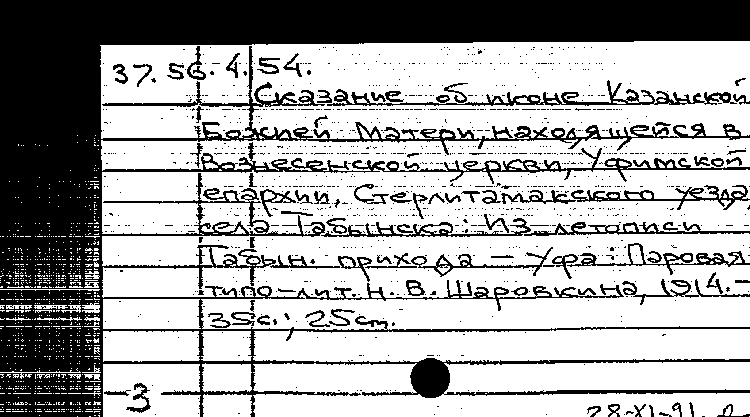 37.56.4.54.
Сказание об иконе Казанской
Божией Матери, находящейся в
Вознесенской церкви, Уфимской
епархии, Стерлитамакского уезда,
села Табынска: Из летописи
Табын. прихода — Уфа: Паровая
типо-лит. Н. В. Шаровкина, 1914.-
35с.; 25см.
3
28-XI-91.